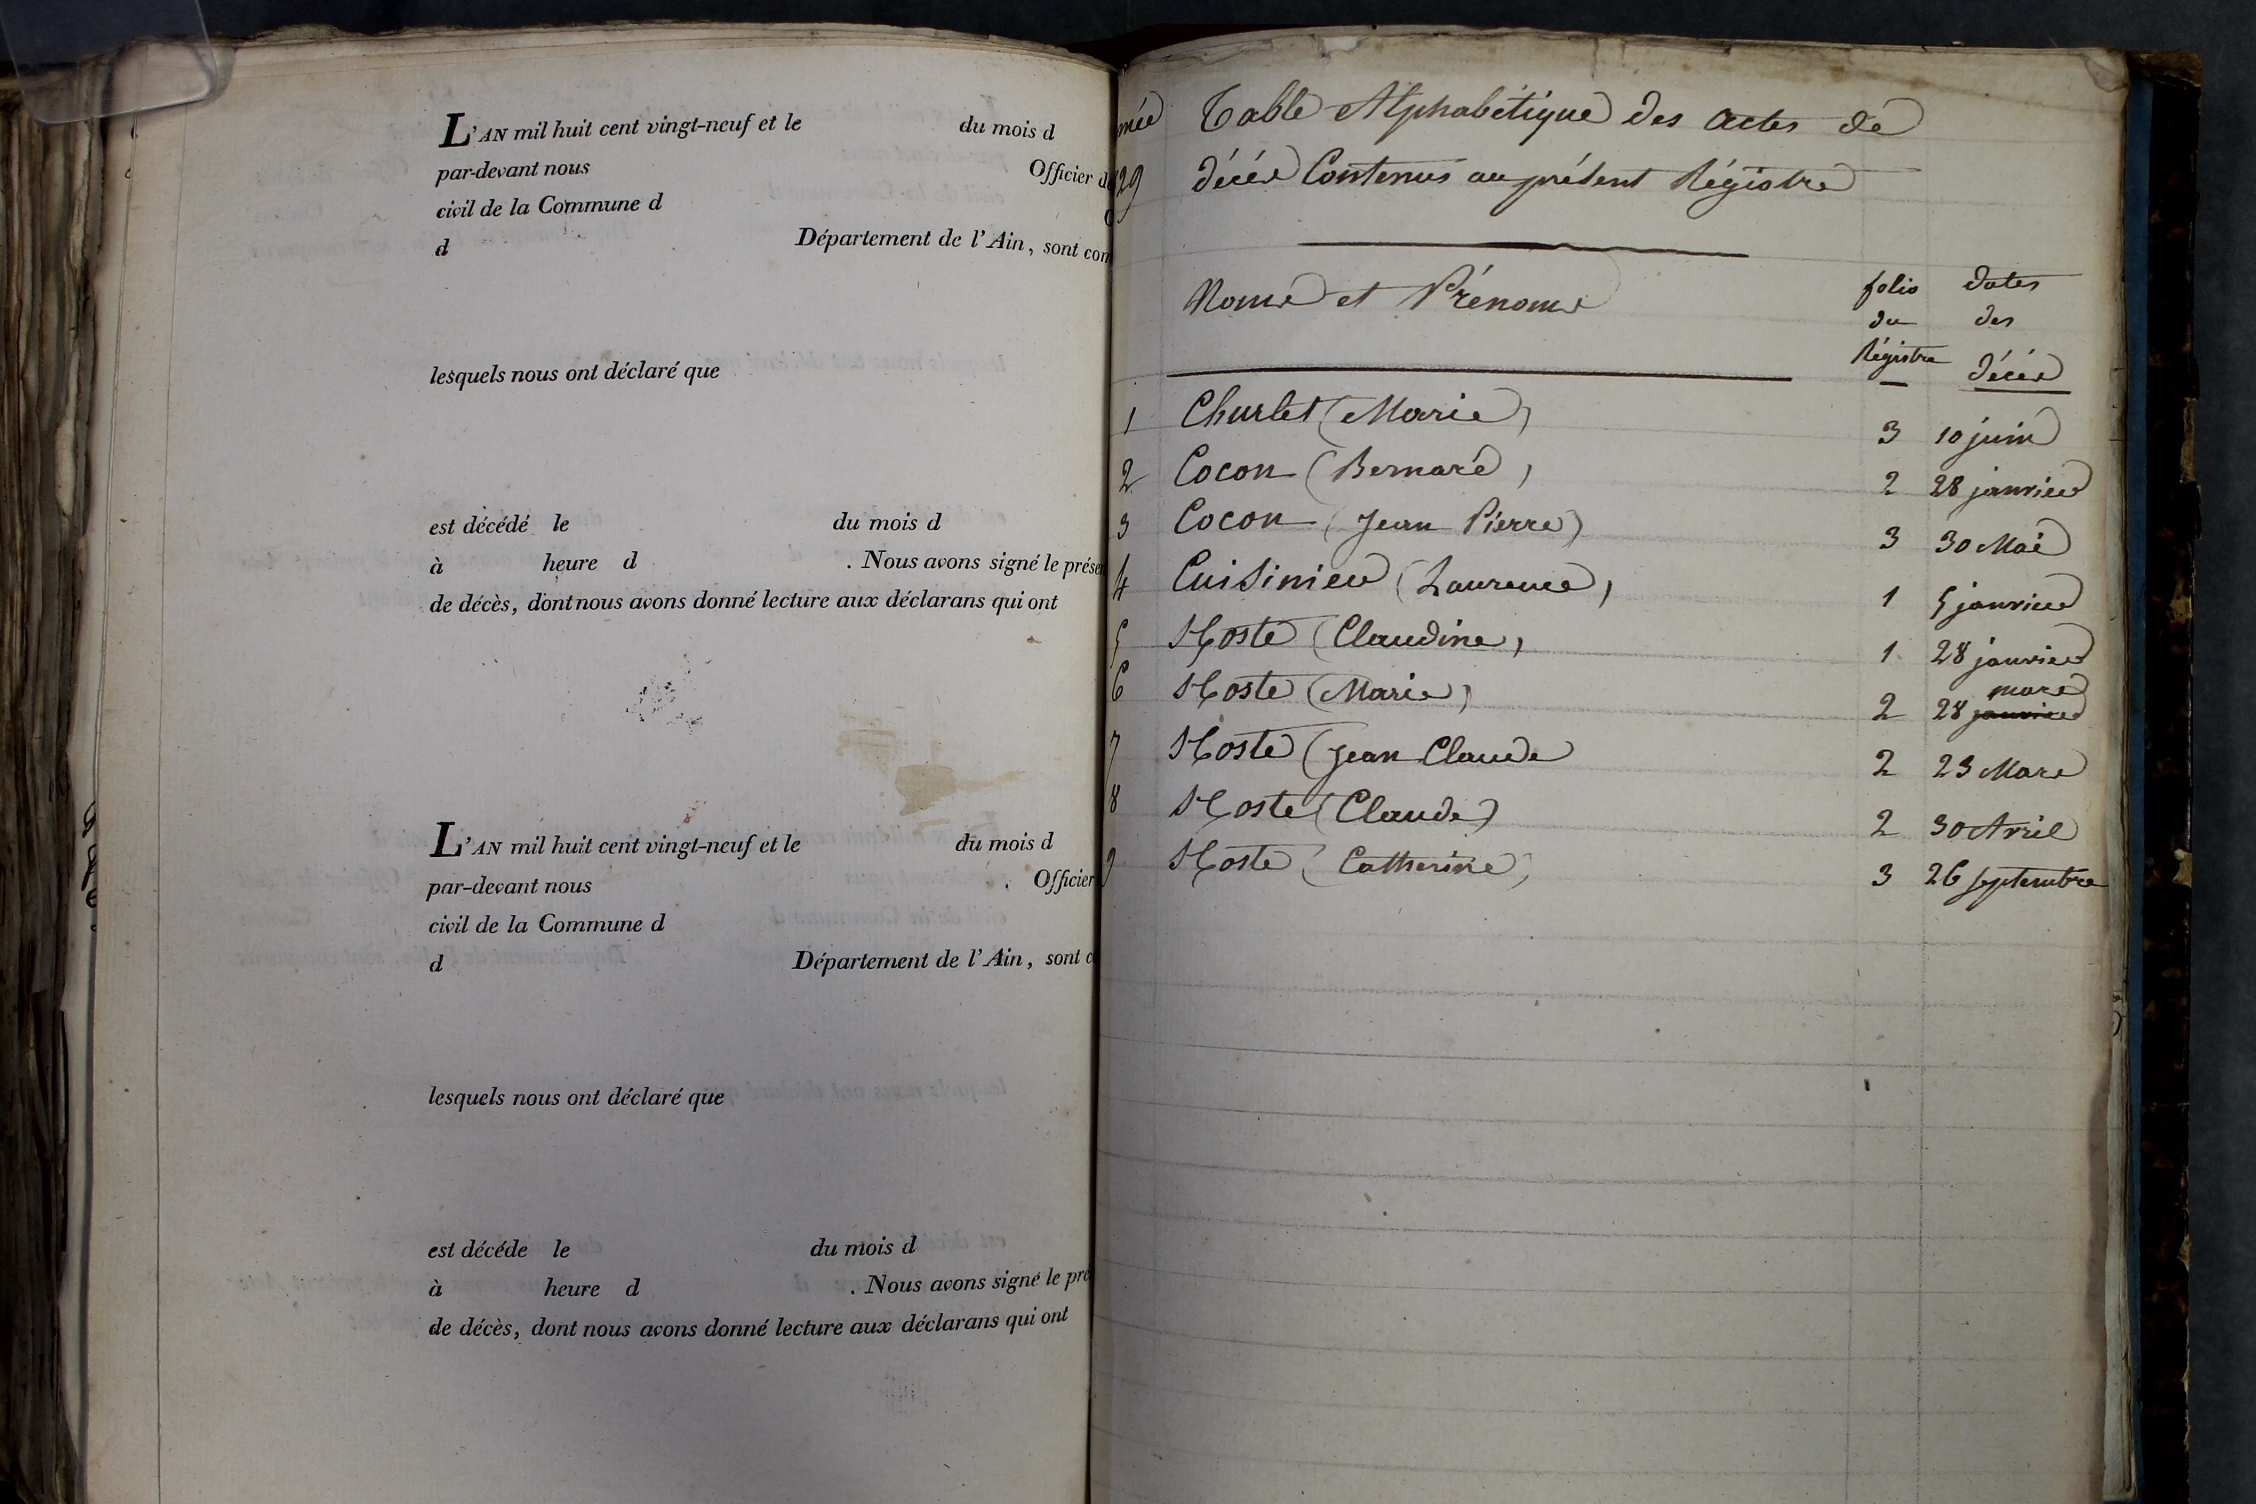 L'AN mil huit cent vingt-neuf et le du mois d
par-devant nous Officier de
civil de la Commune d
d Département de l'Ain, sont com
lesquels nous ont déclaré que
est décédé le du mois d
à heure d . Nous avons signé le présen
de décès, dont nous avons donné lecture aux déclarans qui ont
L'AN mil huit cent vingt-neuf et le du mois d
par-devant nous . Officier
civil de la Commune d
d Département de l'Ain, sont c
lesquels nous ont déclaré que
est décéde le du mois d
à heure d . Nous avons signé le pré
de décès, dont nous avons donné lecture aux déclarans qui ont
née Table Alphabétique des actes de
29 décès Contenus au présent Régistre
Noms et Prénoms folio du Régistre dates des décès
1 Churlet (Marie) 3 10 juin
2 Cocon (Bernard) 2 28 janvier
3 Cocon (Jean Pierre) 3 30 Mai
4 Cuisinier (Laurence) 1 5 janvier
5 Hoste (Claudine) 1 28 janvier
6 Hoste (Marie) 2 28 janvier mars
7 Hoste (Jean Claude 2 23 Mars
8 Hoste (Claude) 2 30 Avril
9 Hoste (Catherine) 3 26 septembre